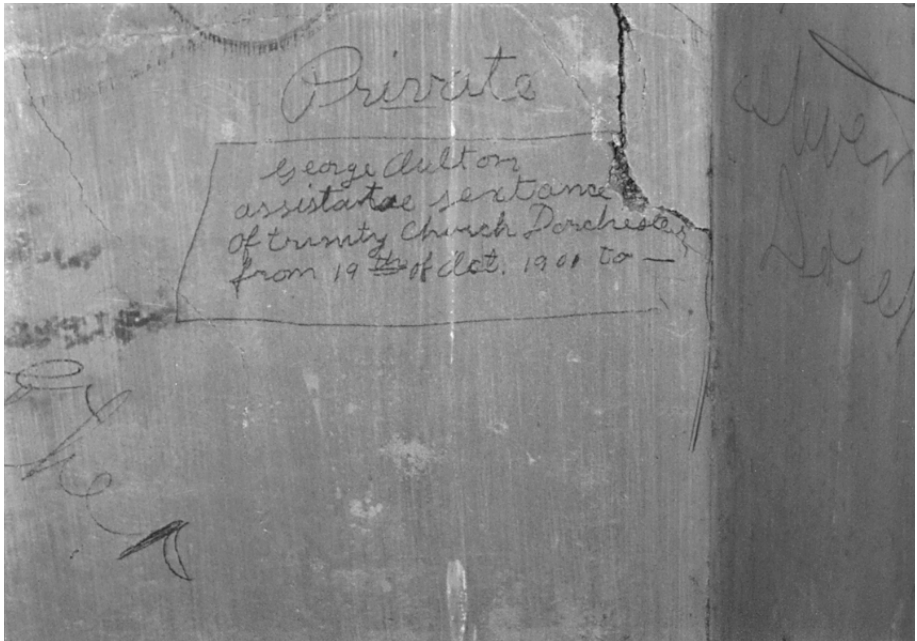 Private
George Aulton
assistante sextance
of trinity Church Dorchester
from 19th of Oct. 1901 to —